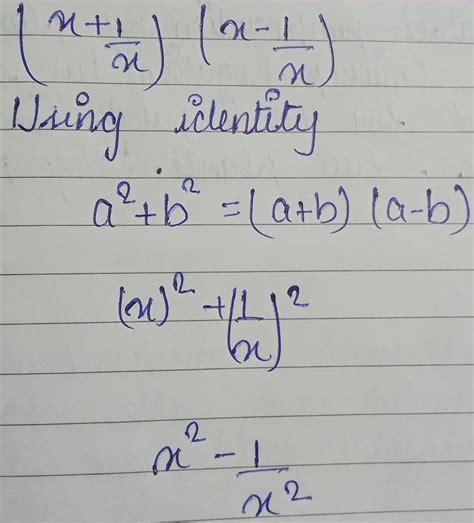 (x+1/x) (x-1/x)
Using identity
a²+b² = (a+b) (a-b)
(x)² + (1/x)²
x² - 1/x²